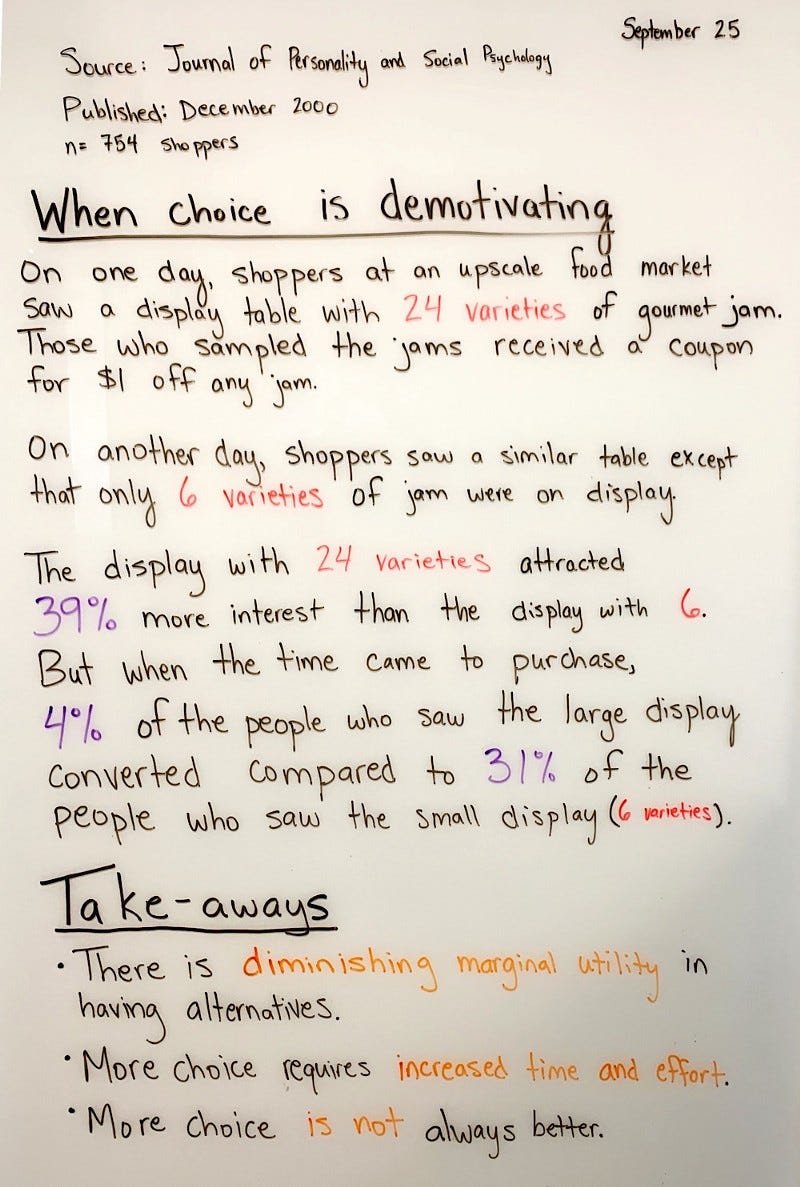 September 25
Source: Journal of Personality and Social Psychology
Published: December 2000
n= 754 shoppers
When choice is demotivating
On one day, shoppers at an upscale food market
saw a display table with 24 varieties of gourmet jam.
Those who sampled the jams received a coupon
for $1 off any jam.
On another day, shoppers saw a similar table except
that only 6 varieties of jam were on display.
The display with 24 varieties attracted
39% more interest than the display with 6.
But when the time came to purchase,
4% of the people who saw the large display
converted compared to 31% of the
people who saw the small display (6 varieties).
Take-aways
• There is diminishing marginal utility in
having alternatives.
• More choice requires increased time and effort.
• More choice is not always better.